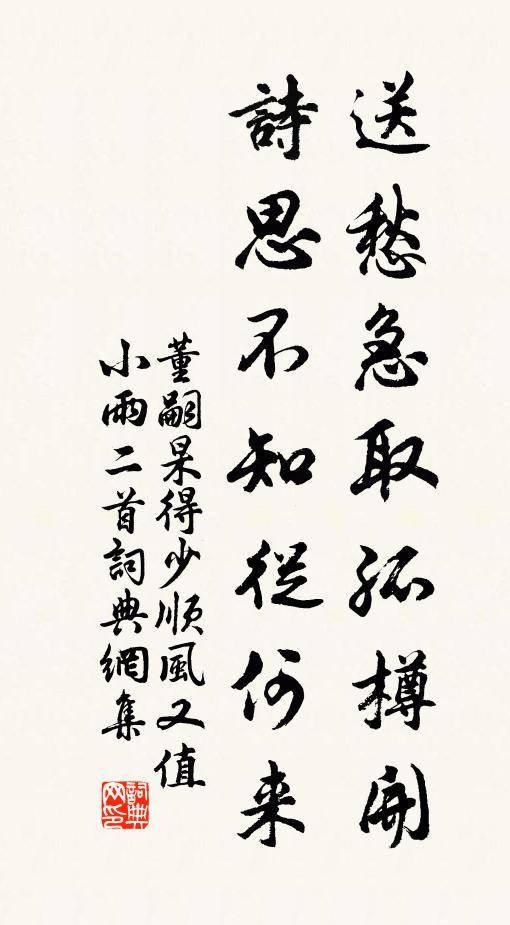 送愁急取孤樽開
詩思不知從何来
董嗣杲得少順風又值
小雨二首詞典網集
詞典网印